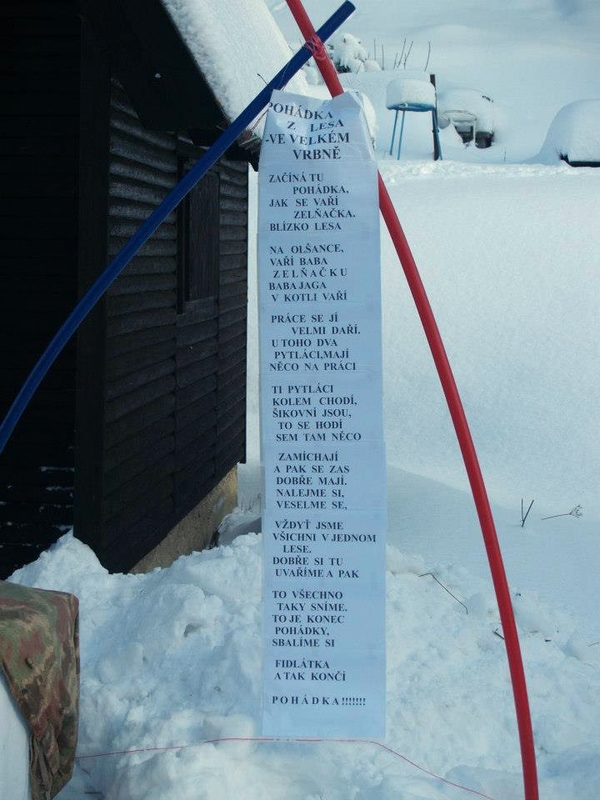 POHÁDKA
Z LESA
-VE VELKÉM
VRBNĚ
ZAČÍNÁ TU
POHÁDKA,
JAK SE VAŘÍ
ZELŇAČKA.
BLÍZKO LESA
NA OLŠANCE,
VAŘÍ BABA
ZELŇAČKU
BABA JAGA
V KOTLI VAŘÍ
PRÁCE SE JÍ
VELMI DAŘÍ.
U TOHO DVA
PYTLÁCI,MAJÍ
NĚCO NA PRÁCI
TI PYTLÁCI
KOLEM CHODÍ,
ŠIKOVNÍ JSOU,
TO SE HODÍ
SEM TAM NĚCO
ZAMÍCHAJÍ
A PAK SE ZAS
DOBŘE MAJÍ.
NALEJME SI,
VESELME SE,
VŽDYŤ JSME
VŠICHNI V JEDNOM
LESE.
DOBŘE SI TU
UVAŘÍME A PAK
TO VŠECHNO
TAKY SNÍME.
TO JE KONEC
POHÁDKY,
SBALÍME SI
FIDLÁTKA
A TAK KONČÍ
POHÁDKA!!!!!!!